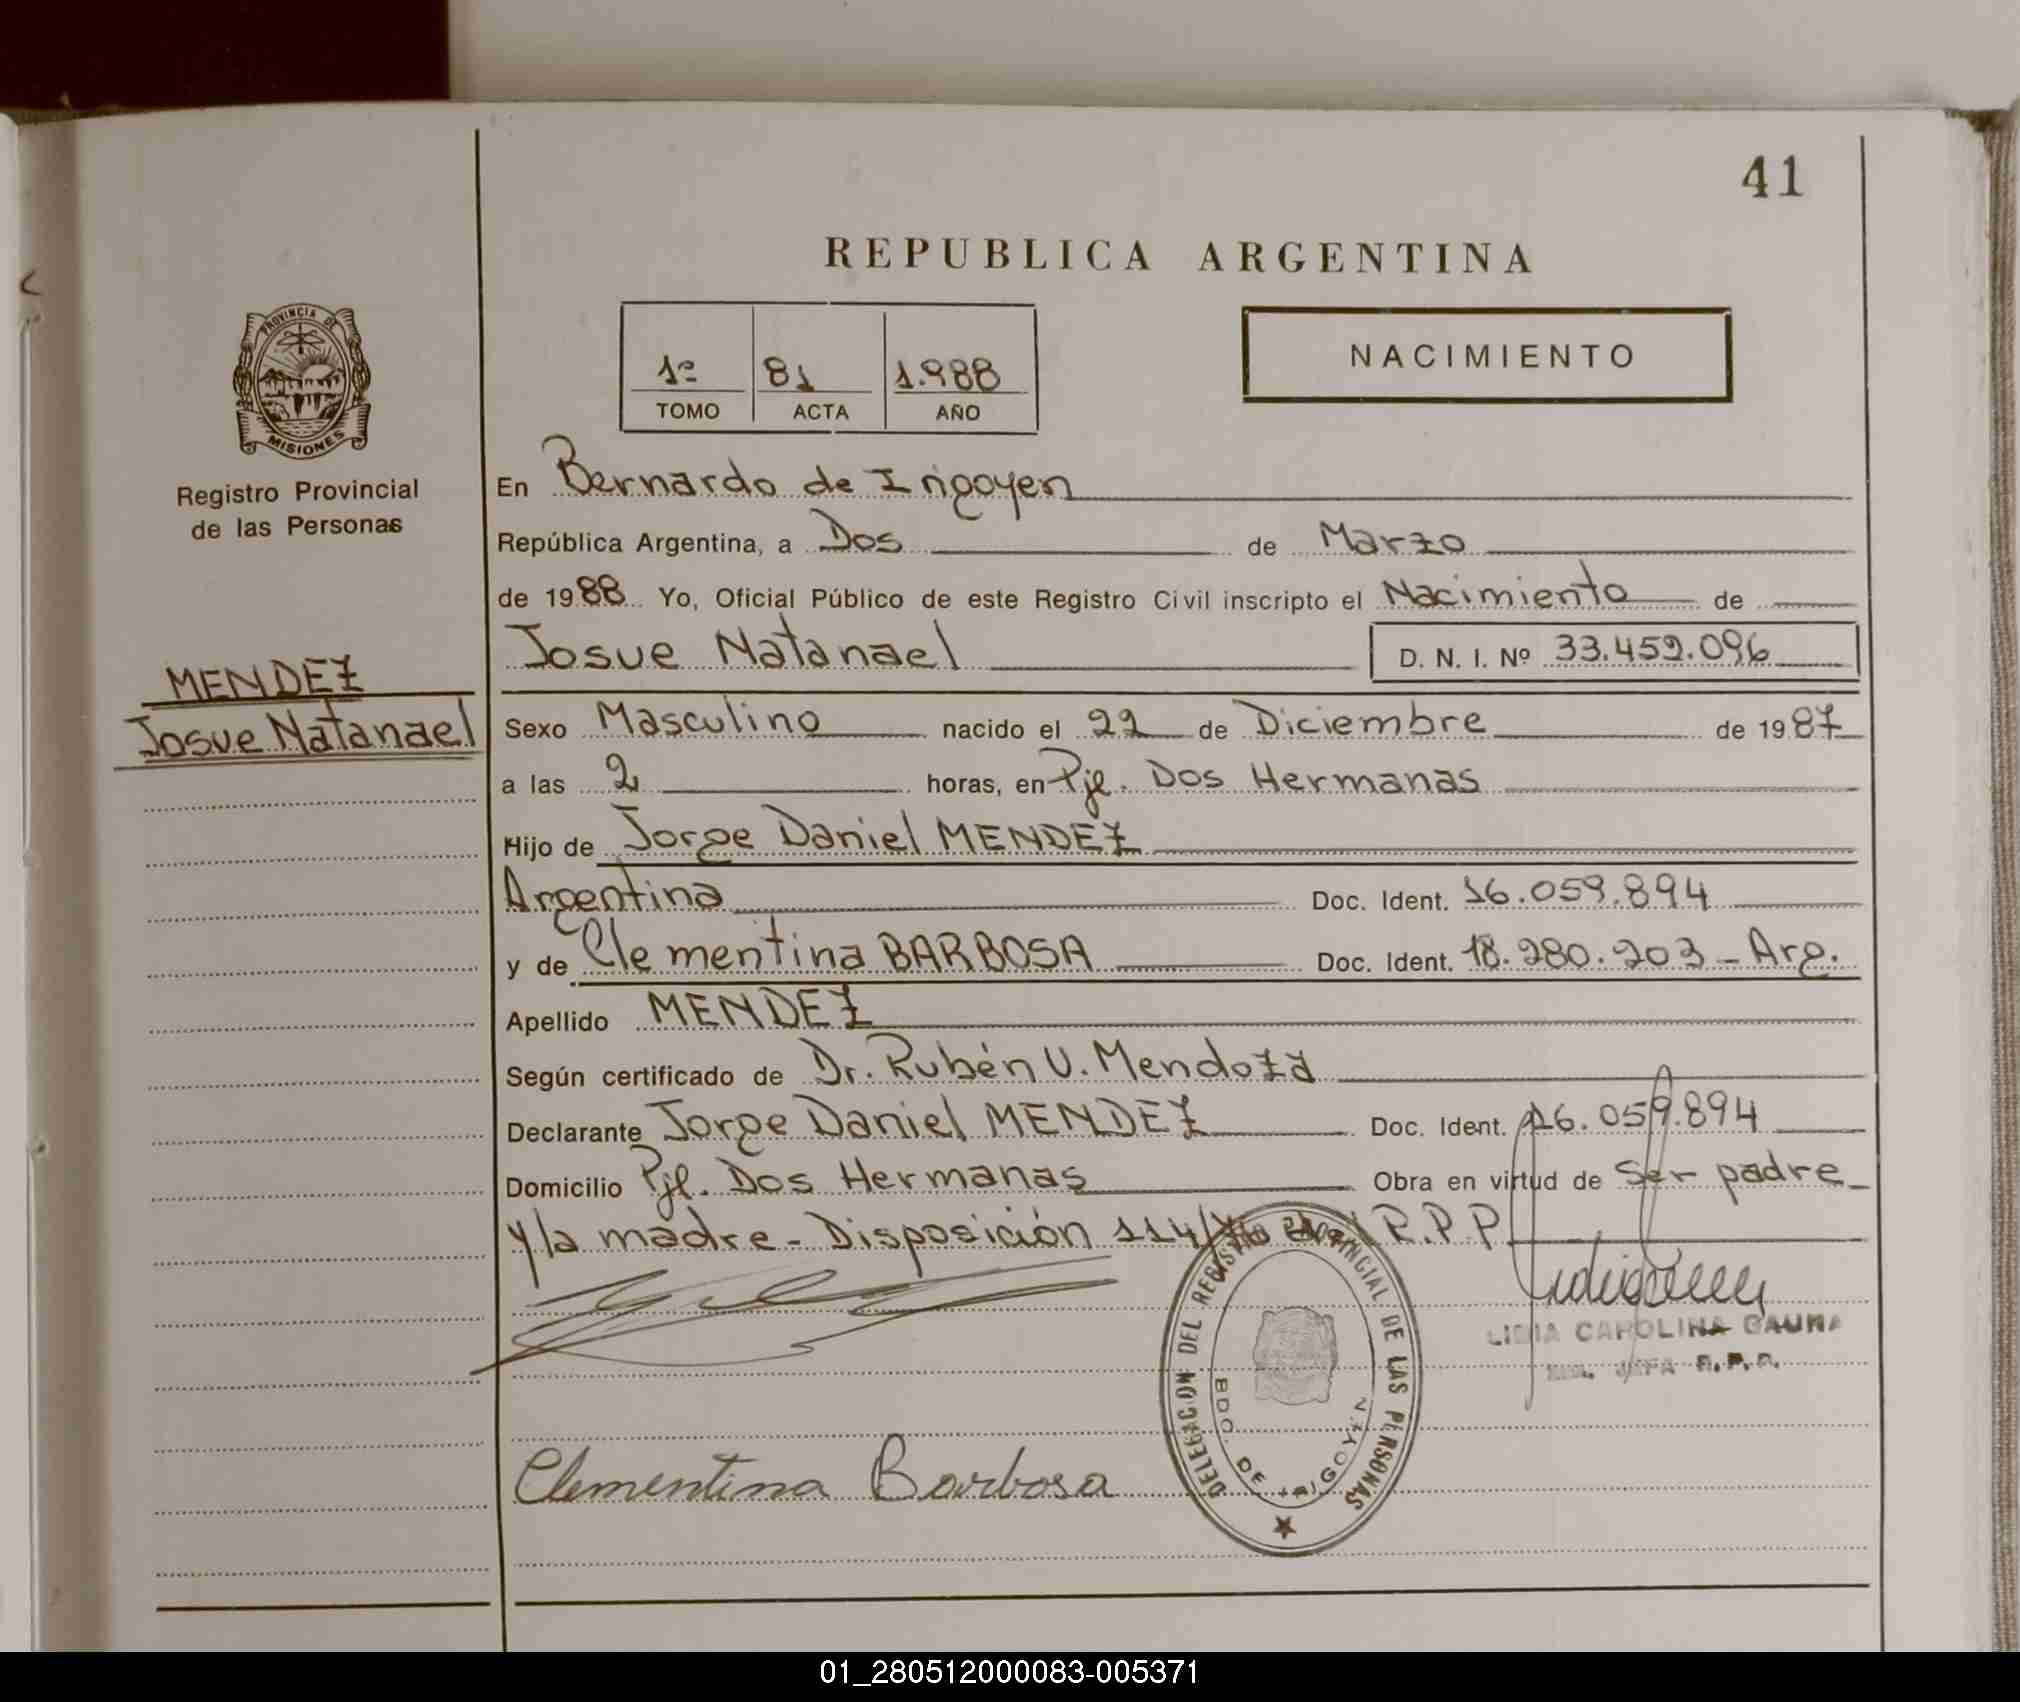 41
REPUBLICA ARGENTINA
PROVINCIA DE
MISIONES
Registro Provincial
de las Personas
1º 81 1.988
TOMO ACTA AÑO
NACIMIENTO
En Bernardo de Irigoyen
República Argentina, a Dos de Marzo
de 1988 Yo, Oficial Público de este Registro Civil inscripto el Nacimiento de
Josue Natanael D. N. I. Nº 33.459.096
MENDEZ
Josue Natanael
Sexo Masculino nacido el 22 de Diciembre de 1987
a las 2 horas, en Pje. Dos Hermanas
Hijo de Jorge Daniel MENDEZ
Argentina Doc. Ident. 16.059.894
y de Clementina BARBOSA Doc. Ident. 18.280.203 - Arg.
Apellido MENDEZ
Según certificado de Dr. Rubén U. Mendoza
Declarante Jorge Daniel MENDEZ Doc. Ident. 16.059.894
Domicilio Pje. Dos Hermanas Obra en virtud de Ser padre
y la madre - Disposición 114/ R.P.P.
DELEGACION DEL REGISTRO PROVINCIAL DE LAS PERSONAS
BDO. DE IRIGOYEN
LIDIA CAROLINA GAUNA
JEFA R.P.P.
Clementina Barbosa
01_280512000083-005371